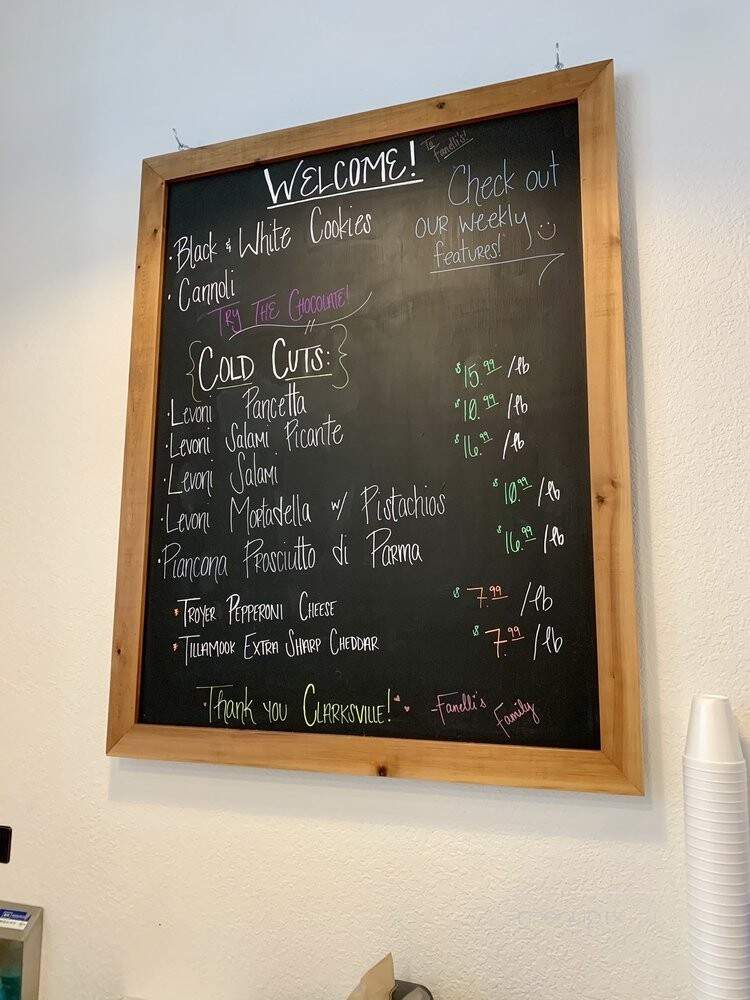 WELCOME! To
Fanelli's!
Check out
our weekly
features!
· Black & White Cookies
· Cannoli
Try The Chocolate!
Cold Cuts:
· Levoni Pancetta $15.99 /lb
· Levoni Salami Picante $10.99 /lb
· Levoni Salami $16.99 /lb
· Levoni Mortadella w/ Pistachios $10.99 /lb
· Piancona Prosciutto di Parma $16.99 /lb
* Troyer Pepperoni Cheese $7.99 /lb
* Tillamook Extra Sharp Cheddar $7.99 /lb
Thank you Clarksville! -Fanelli's
Family